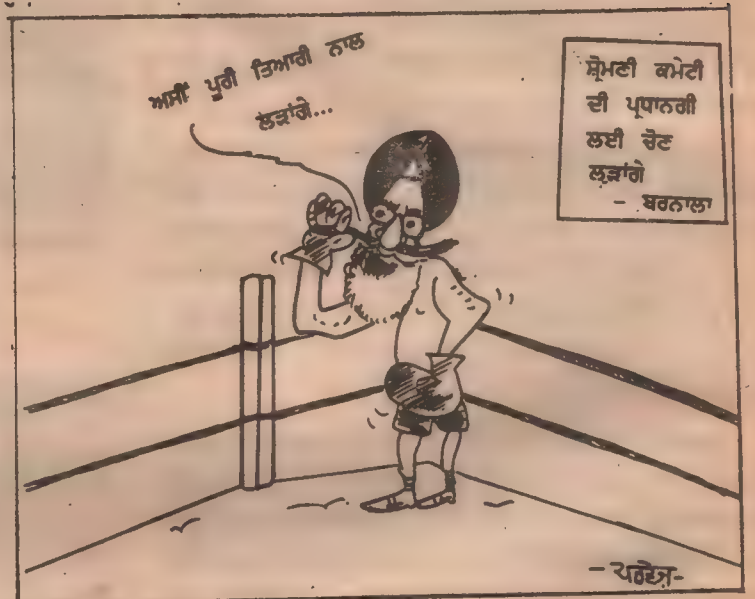 ਅਸੀਂ ਪੂਰੀ ਤਿਆਰੀ ਨਾਲ
ਲੜਾਂਗੇ...
ਸ਼੍ਰੋਮਣੀ ਕਮੇਟੀ
ਦੀ ਪ੍ਰਧਾਨਗੀ
ਲਈ ਚੋਣ
ਲੜਾਂਗੇ
- ਬਰਨਾਲਾ
- ਪਰਵੇਜ਼-